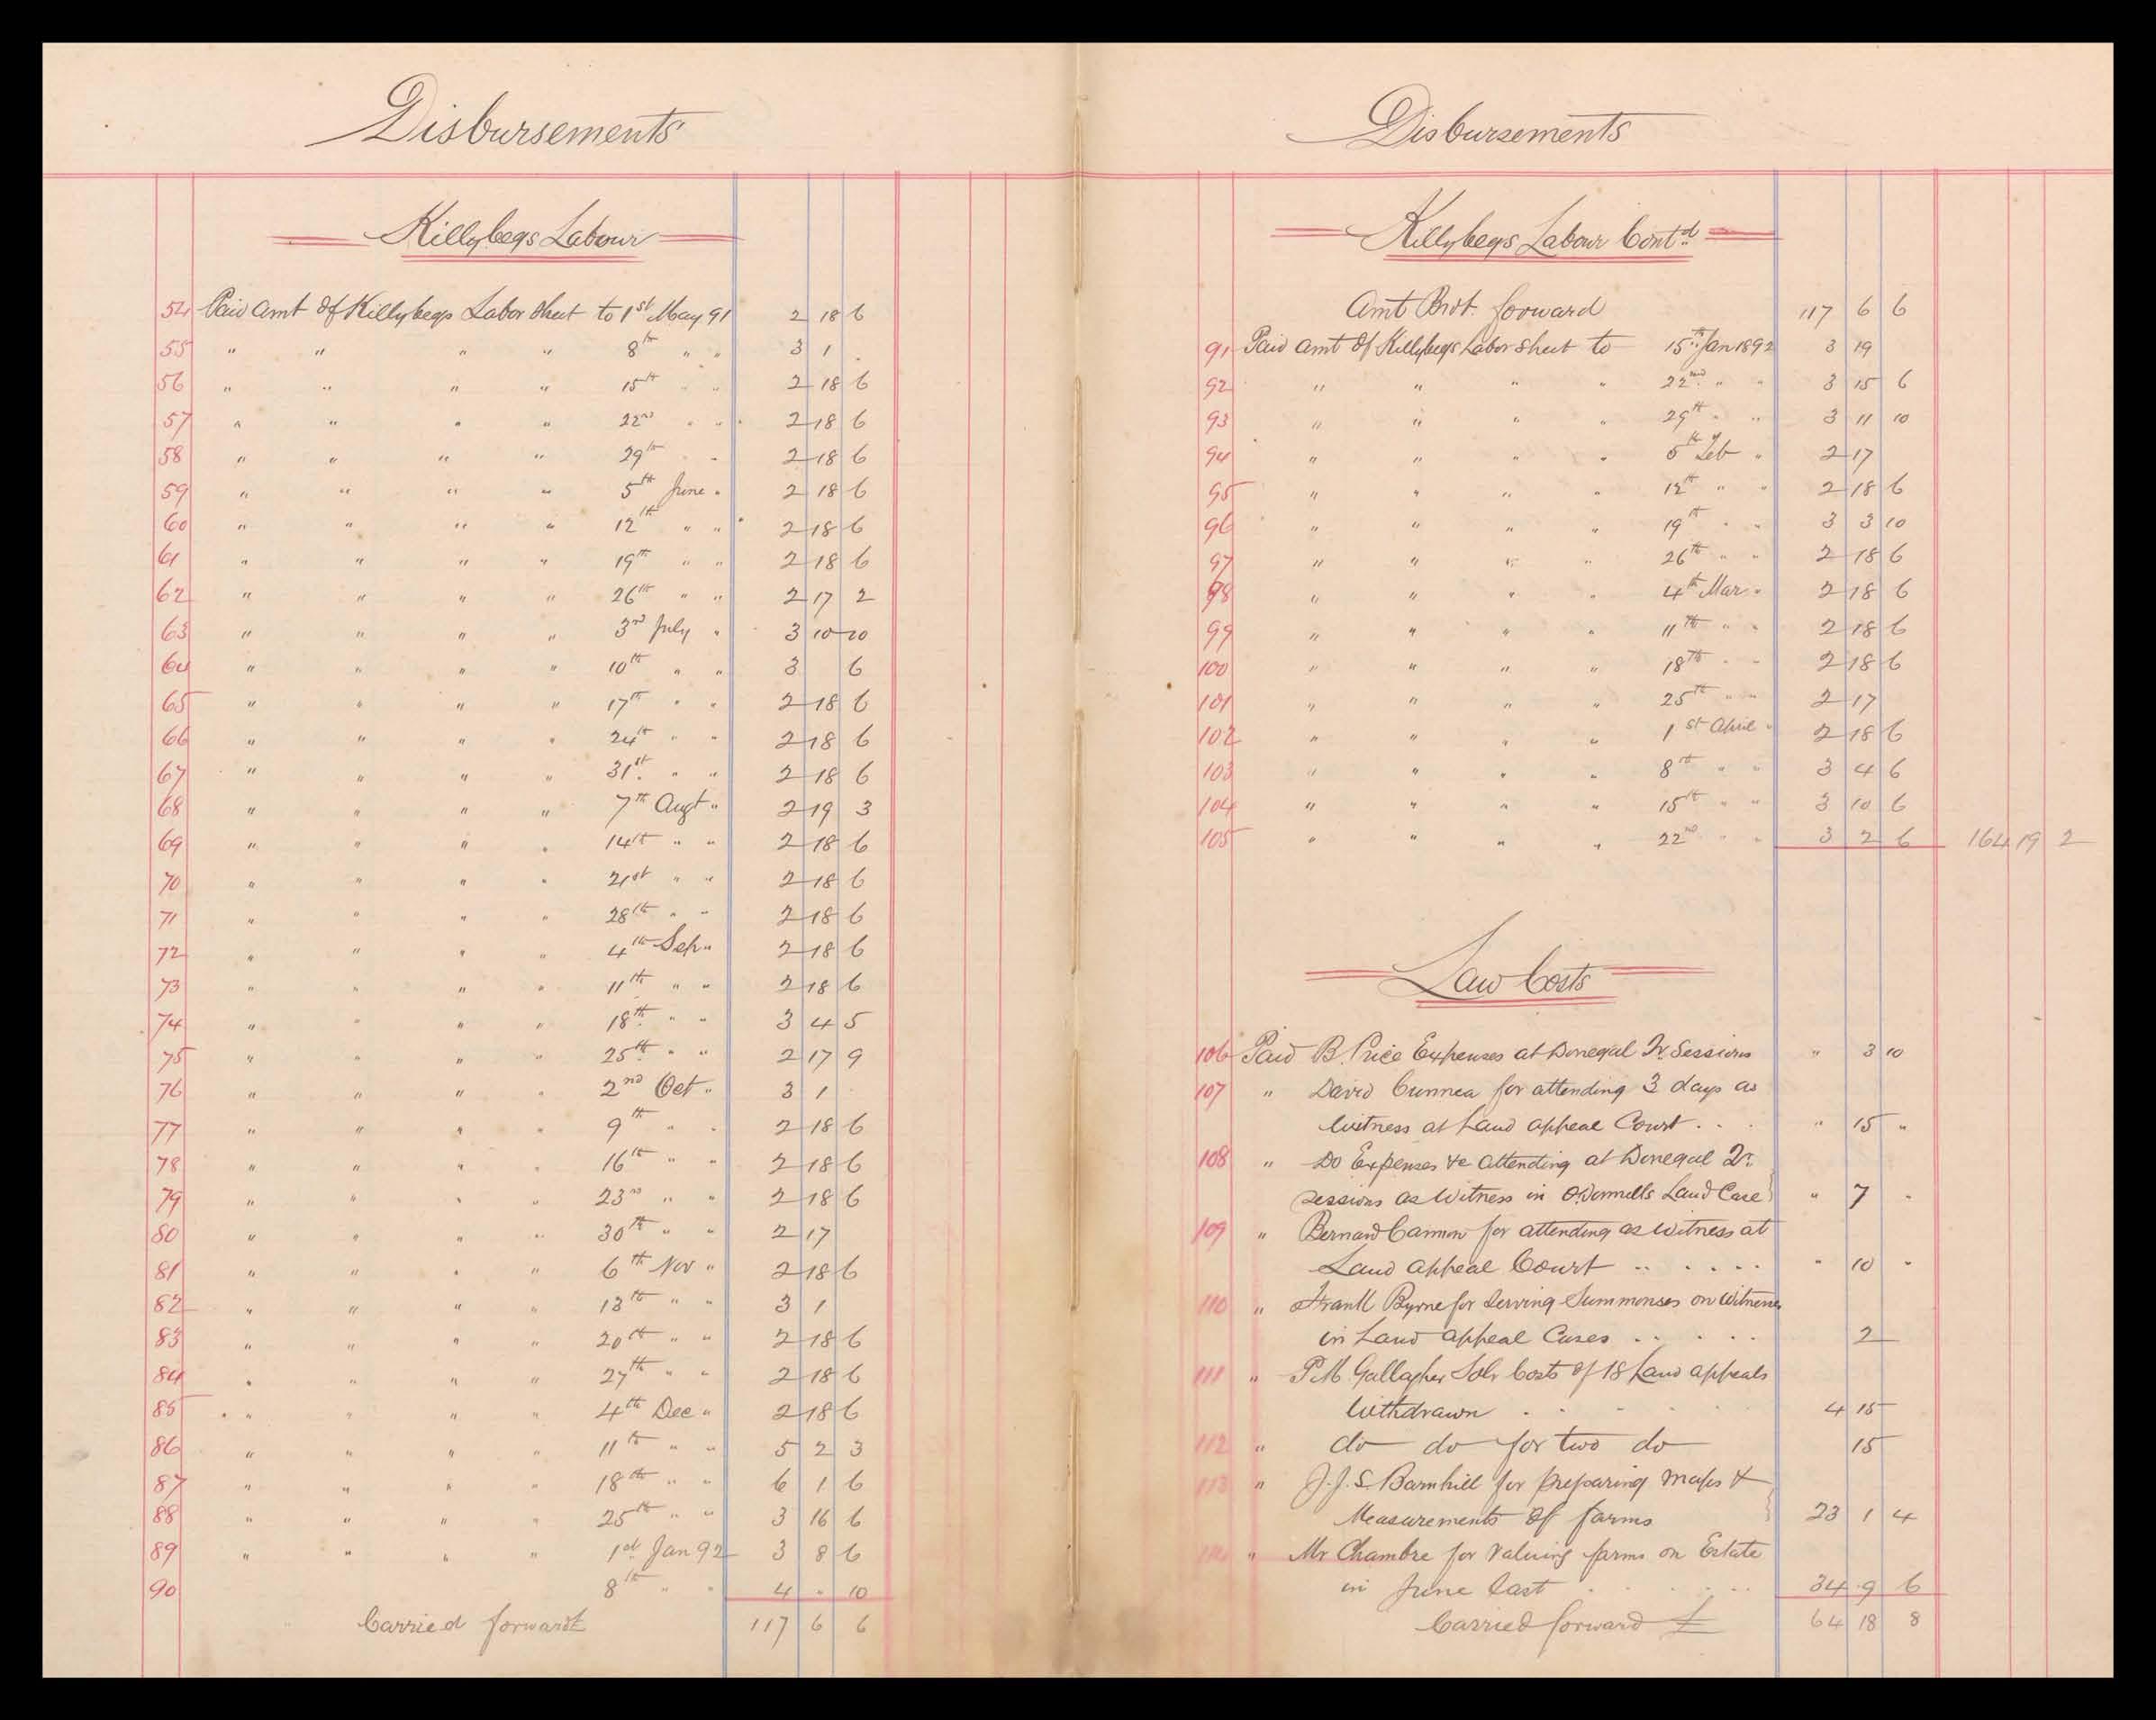 Disbursements
Killybegs Labour
54 Paid Amt of Killybegs Labor Sheet to 1st May 91 2 18 6
55 " " " " 8th " " 3 1 .
56 " " " " 15th " " 2 18 6
57 " " " " 22nd " " 2 18 6
58 " " " " 29th " " 2 18 6
59 " " " " 5th June " 2 18 6
60 " " " " 12th " " 2 18 6
61 " " " " 19th " " 2 18 6
62 " " " " 26th " " 2 17 2
63 " " " " 3rd July " 3 10 10
64 " " " " 10th " " 3 6
65 " " " " 17th " " 2 18 6
66 " " " " 24th " " 2 18 6
67 " " " " 31st " " 2 18 6
68 " " " " 7th Augt " 2 19 3
69 " " " " 14th " " 2 18 6
70 " " " " 21st " " 2 18 6
71 " " " " 28th " " 2 18 6
72 " " " " 4th Sep " 2 18 6
73 " " " " 11th " " 2 18 6
74 " " " " 18th " " 3 4 5
75 " " " " 25th " " 2 17 9
76 " " " " 2nd Oct " 3 1
77 " " " " 9th " " 2 18 6
78 " " " " 16th " " 2 18 6
79 " " " " 23rd " " 2 18 6
80 " " " " 30th " " 2 17
81 " " " " 6th Nov " 2 18 6
82 " " " " 13th " " 3 1
83 " " " " 20th " " 2 18 6
84 " " " " 27th " " 2 18 6
85 " " " " 4th Dec " 2 18 6
86 " " " " 11th " " 5 2 3
87 " " " " 18th " " 6 1 6
88 " " " " 25th " " 3 16 6
89 " " " " 1st Jan 92 3 8 6
90 8th " " 4 " 10
Carried forward 117 6 6
Disbursements
Killybegs Labour Contd
Amt Brot. forward 117 6 6
91 Paid Amt of Killybegs Labor Sheet to 15th Jan 1892 3 19
92 " " " " 22nd " " 3 15 6
93 " " " " 29th " " 3 11 10
94 " " " " 5th Feby " 2 17
95 " " " " 12th " " 2 18 6
96 " " " " 19th " " 3 3 10
97 " " " " 26th " " 2 18 6
98 " " " " 4th Mar " 2 18 6
99 " " " " 11th " " 2 18 6
100 " " " " 18th " " 2 18 6
101 " " " " 25th " " 2 17
102 " " " " 1st April " 2 18 6
103 " " " " 8th " " 3 4 6
104 " " " " 15th " " 3 10 6
105 " " " " 22nd " " 3 2 6 164 19 2
Law Costs
106 Paid B. Price Expenses at Donegal Qr. Sessions " 3 10
107 " David Cunnea for attending 3 days as
Witness at Land Appeal Court . . . " 15 "
108 " Do Expenses &c attending at Donegal Qr.
Sessions as Witness in O'Donnells Land Case " 7 "
109 " Bernard Cannon for attending as Witness at
Land Appeal Court . . . . . " 10 "
110 " Frank Byrne for Serving Summonses on Witnesses
in Land Appeal Cases . . . . . 2
111 " P.M. Gallagher Solr Costs of 18 Land Appeals
Withdrawn . . . . . 4 15
112 " do do for two do 15
113 " J.J.S. Barnhill for preparing Maps &
Measurements of farms 23 1 4
114 " Mr Chambre for Valuing farms on Estate
in June last . . . . . 34 9 6
Carried forward £ 64 18 8